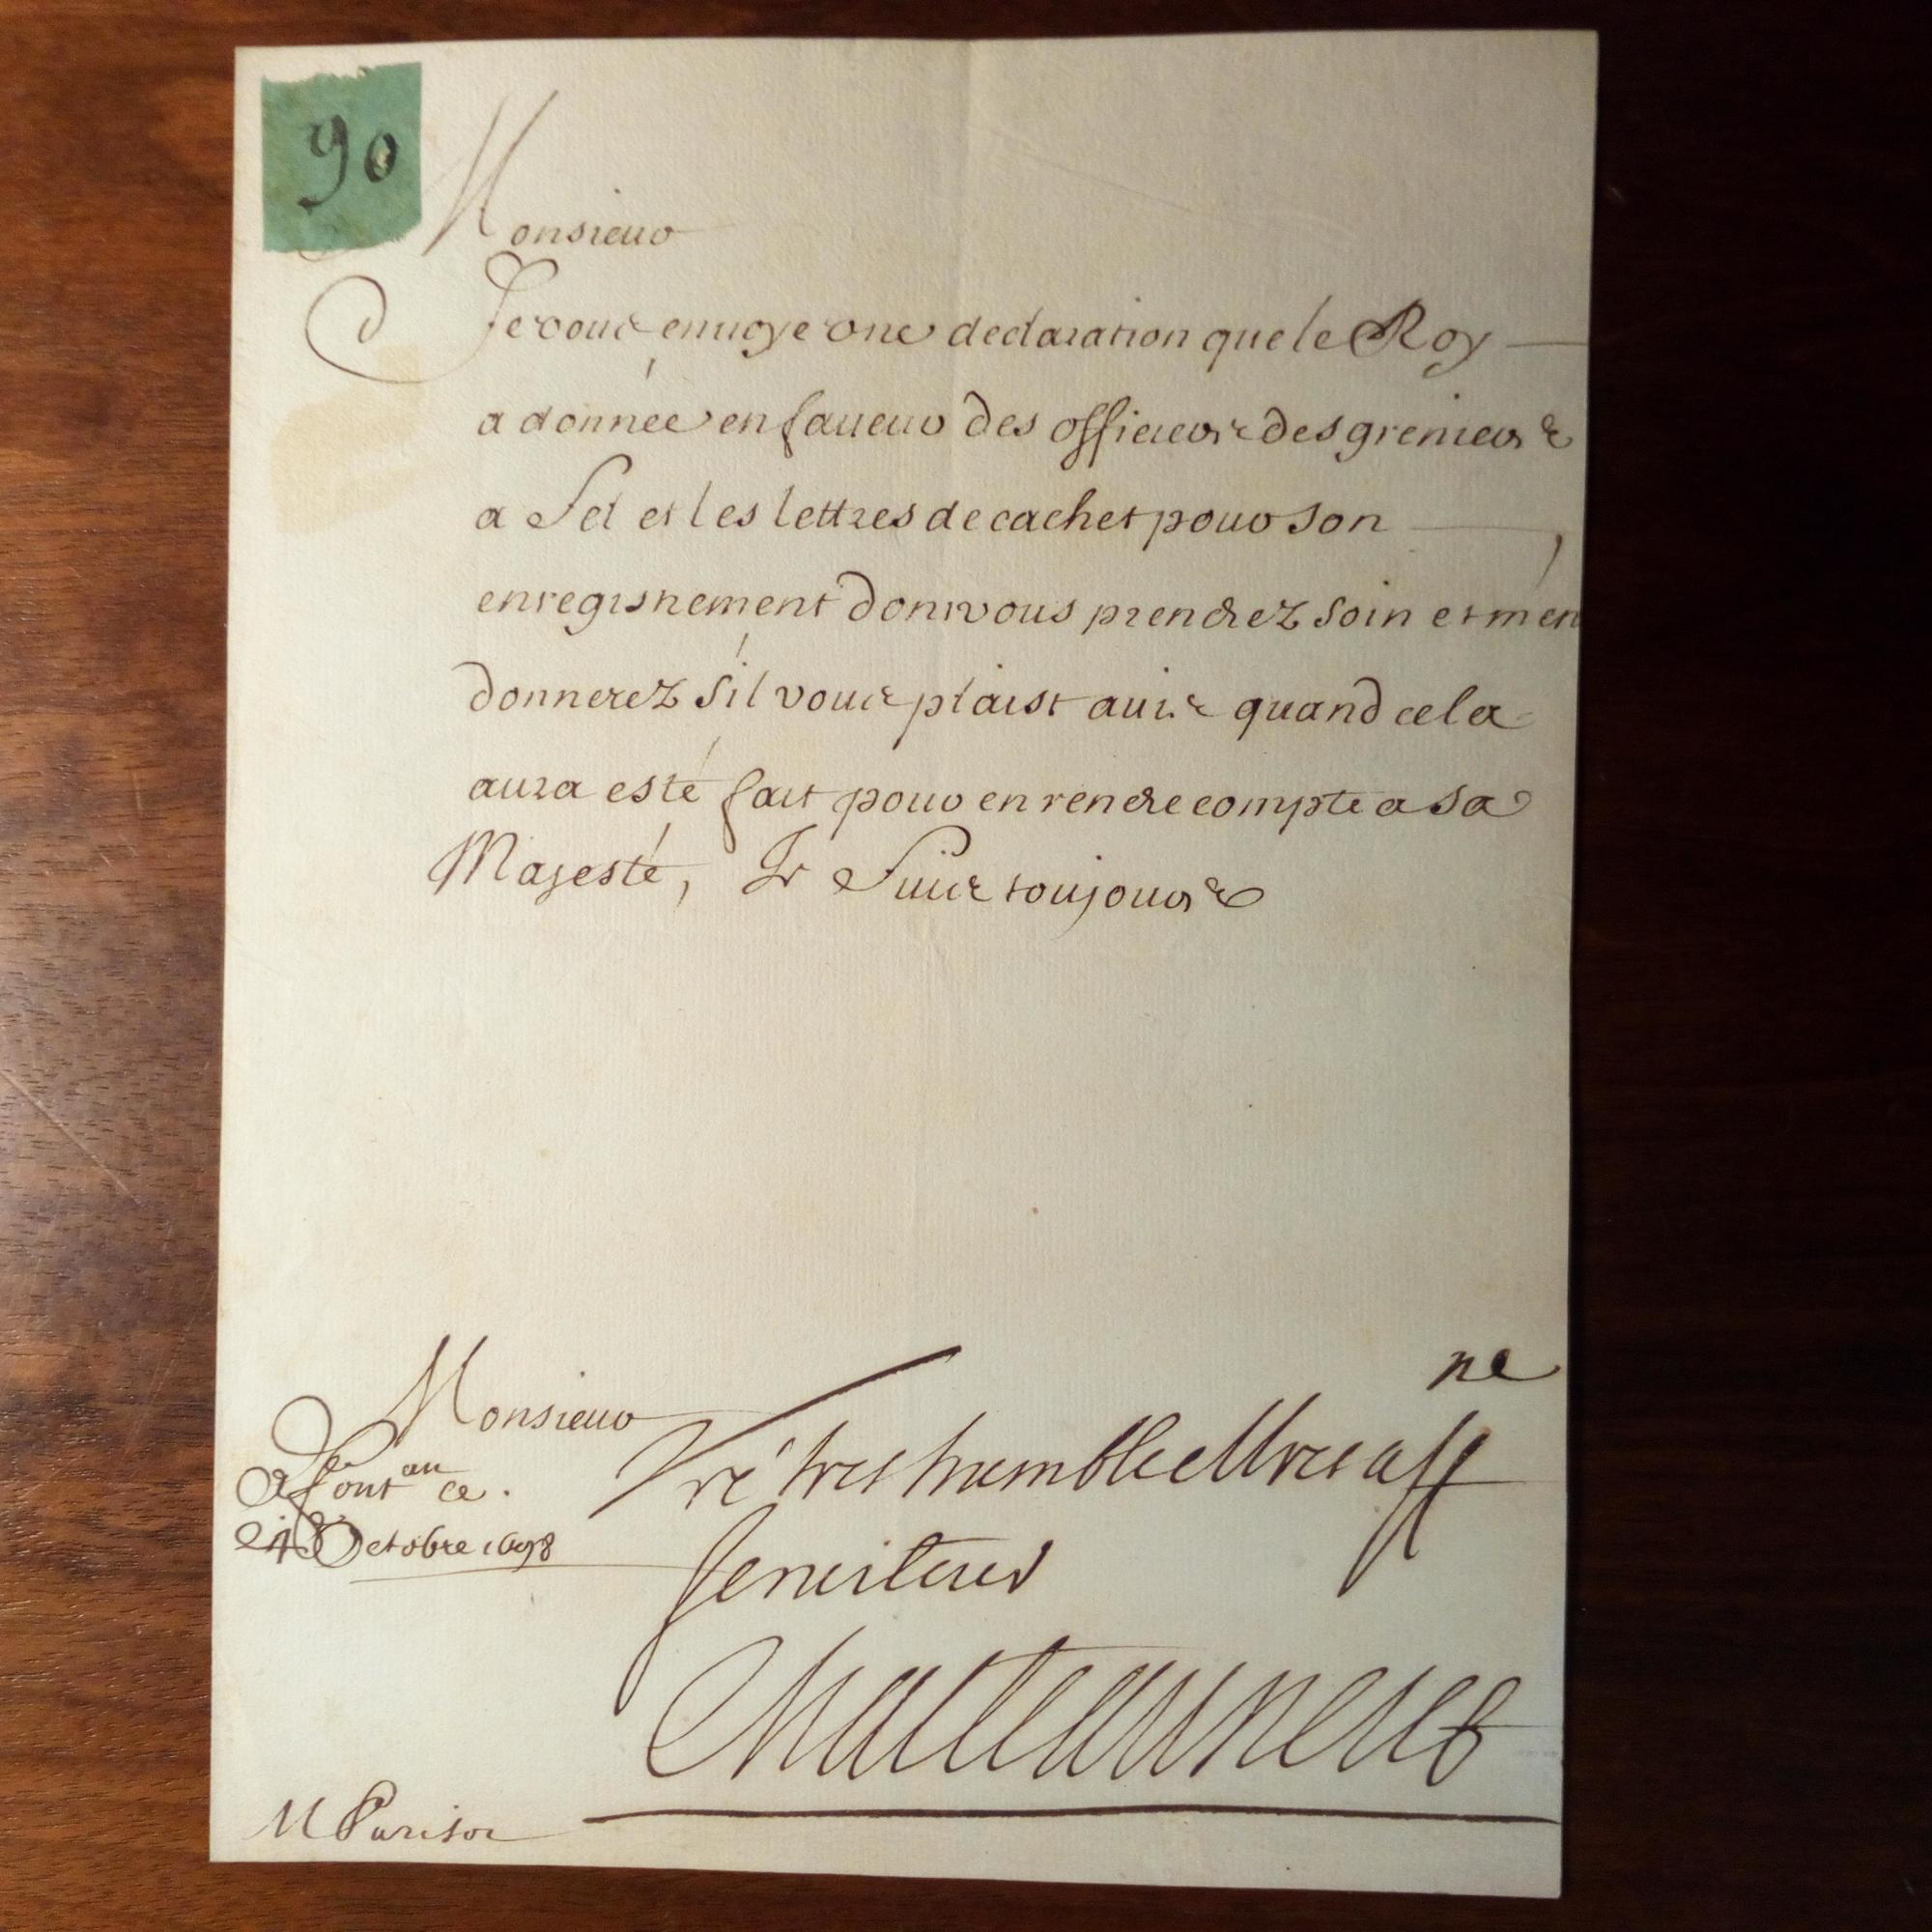 90
Monsieur
Je vous enuoye une declaration que le Roy
a donnée en faueur des officiers des greniers
a Sel et les lettres de cachet pour son
enregistrement dont vous prendrez soin et m'en
donnerez s'il vous plaist auis quand cela
aura esté fait pour en rendre compte a sa
Majesté, Je Suis toujours
Monsieur
Vre tres humble et tres aff ne
seruiteur
A font au ce.
Octobre 1698
Chasteauneuf
M Parisot